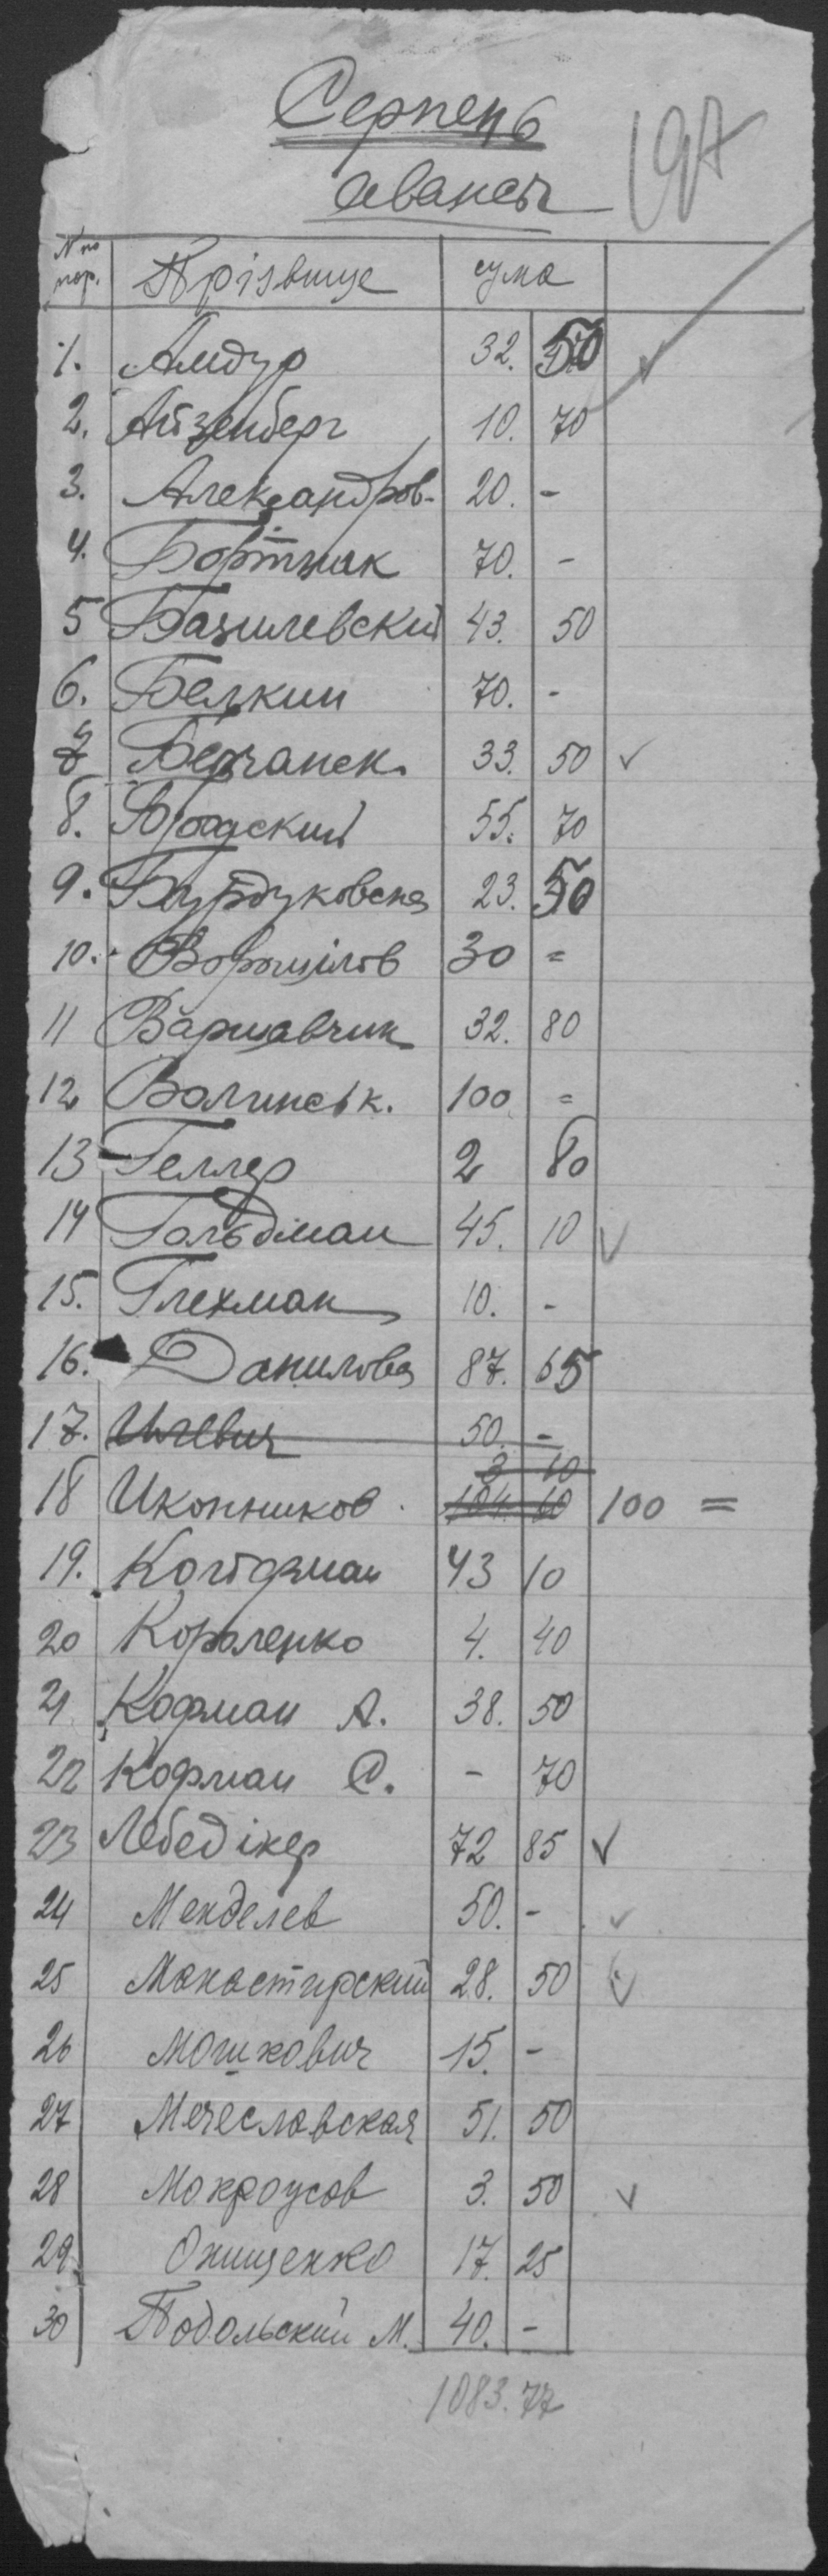 Серпень
авансы
197
N по пор. Прізвище сума
1. Амдур 32. 50 ✓
2. Айзенберг 10. 70
3. Александров- 20. -
4. Бортник 70. -
5 Базилевский 43. 50
6. Белкин 70. -
7 Берчанск. 33. 50 ✓
8. Бродский 55. 70
9. Бурдуковска 23. 50
10. Ворошілов 30 =
11 Варшавчик 32. 80
12 Волинськ. 100 =
13 Геллер 2 80
14 Гольдман 45. 10 ✓
15. Глехман 10. -
16. Данилова 87. 65
17. Ичевич 50. -
3 10
18 Иконников 104. 60 100 =
19. Койфман 43 10
20 Короленко 4. 40
21 Кофман А. 38. 50
22 Кофман С. - 70
23 Лебедікер 72 85 ✓
24 Менделев 50. - ✓
25 Монастирский 28. 50 ✓
26 Мошкович 15. -
27 Мечеславская 51. 50
28 Мокроусов 3. 50 ✓
29. Онищенко 17. 25
30 Подольский М. 40. -
1083. 77